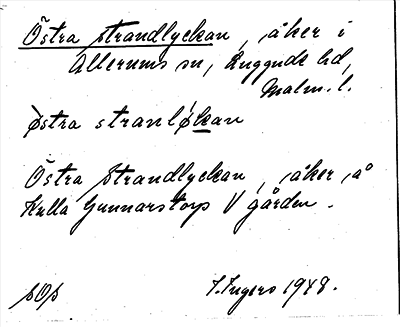 Östra strandlyckan, åker i
Allerums sn, Luggude hd,
Malm. l.
østra stranløkan
Östra strandlyckan, åker, å
Kulla Gunnarstorp V gården.
pOp
I. Ingers 1948.